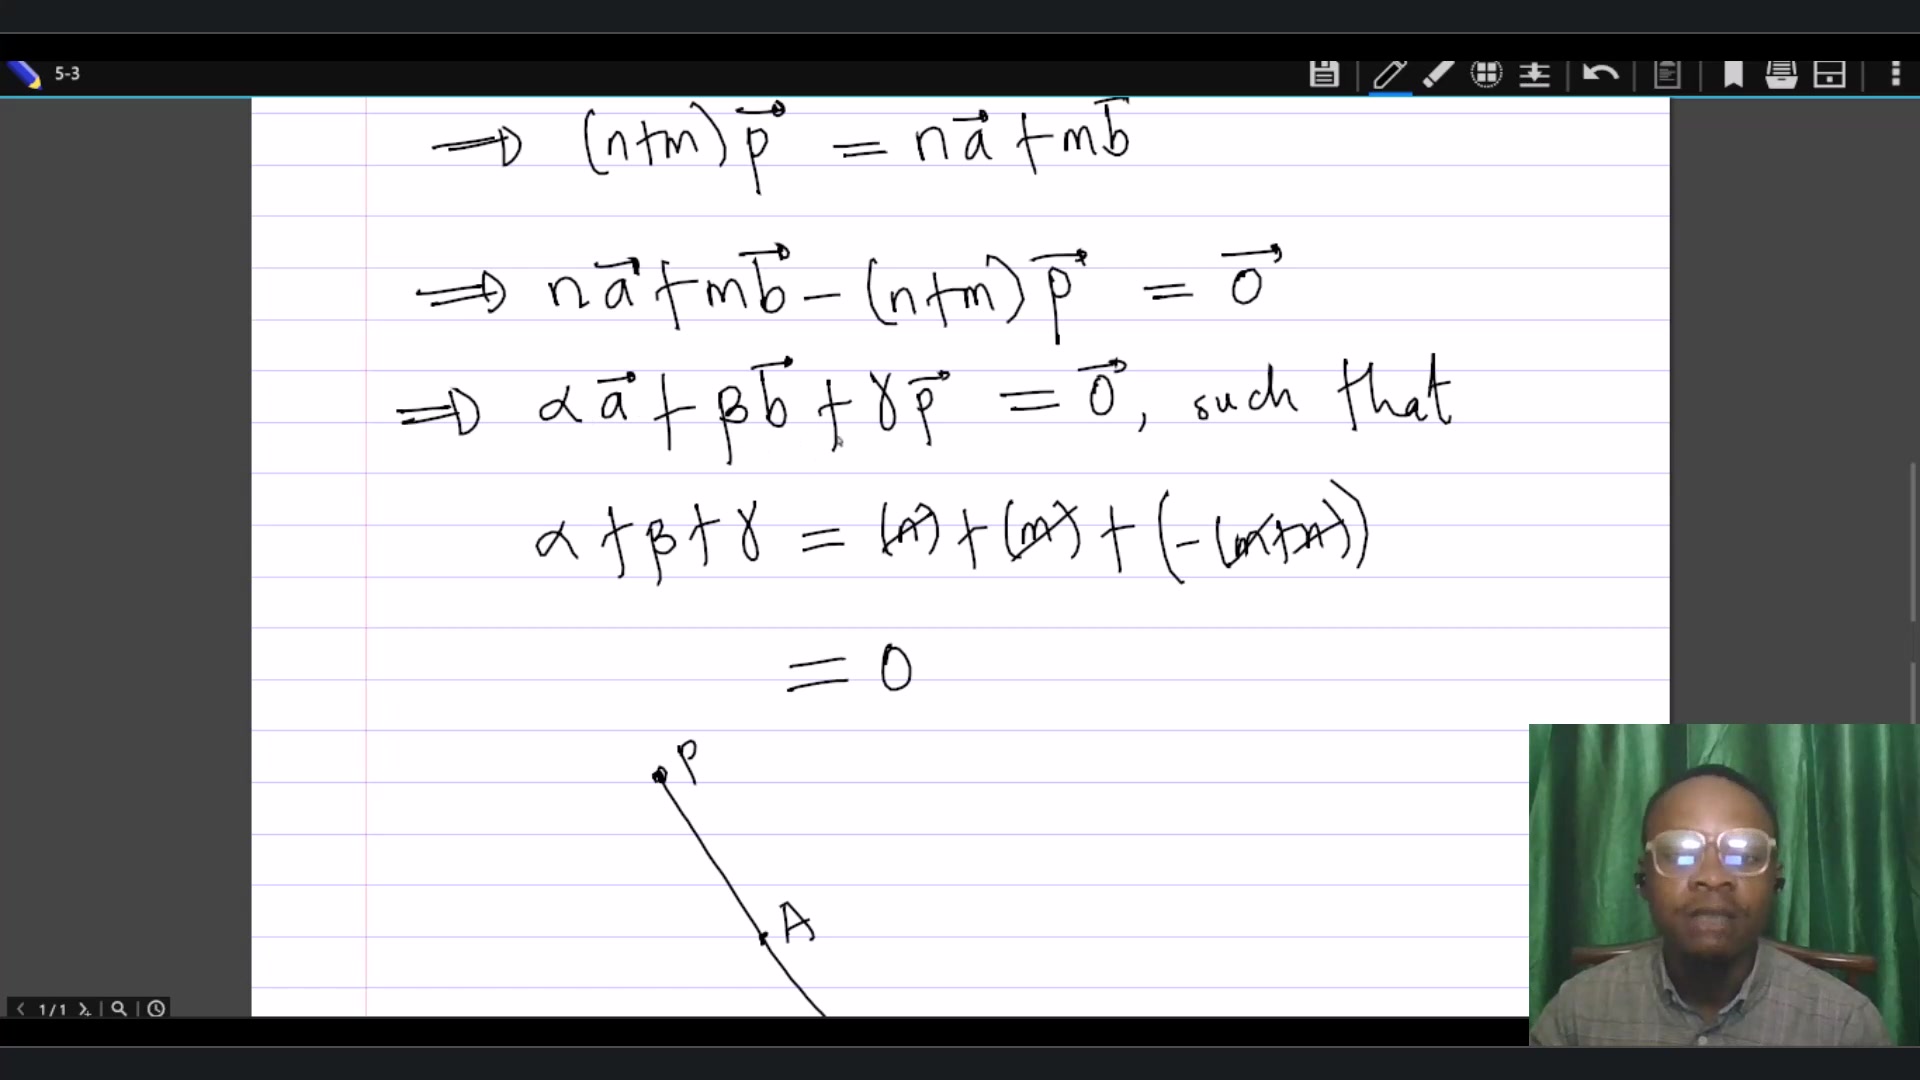 5-3
⟹ (n+m)p⃗ = na⃗ + mb⃗
⟹ na⃗ + mb⃗ - (n+m)p⃗ = 0⃗
⟹ αa⃗ + βb⃗ + γp⃗ = 0⃗, such that
α + β + γ = (n) + (m) + (-(m+n))
= 0
P
A
1/1